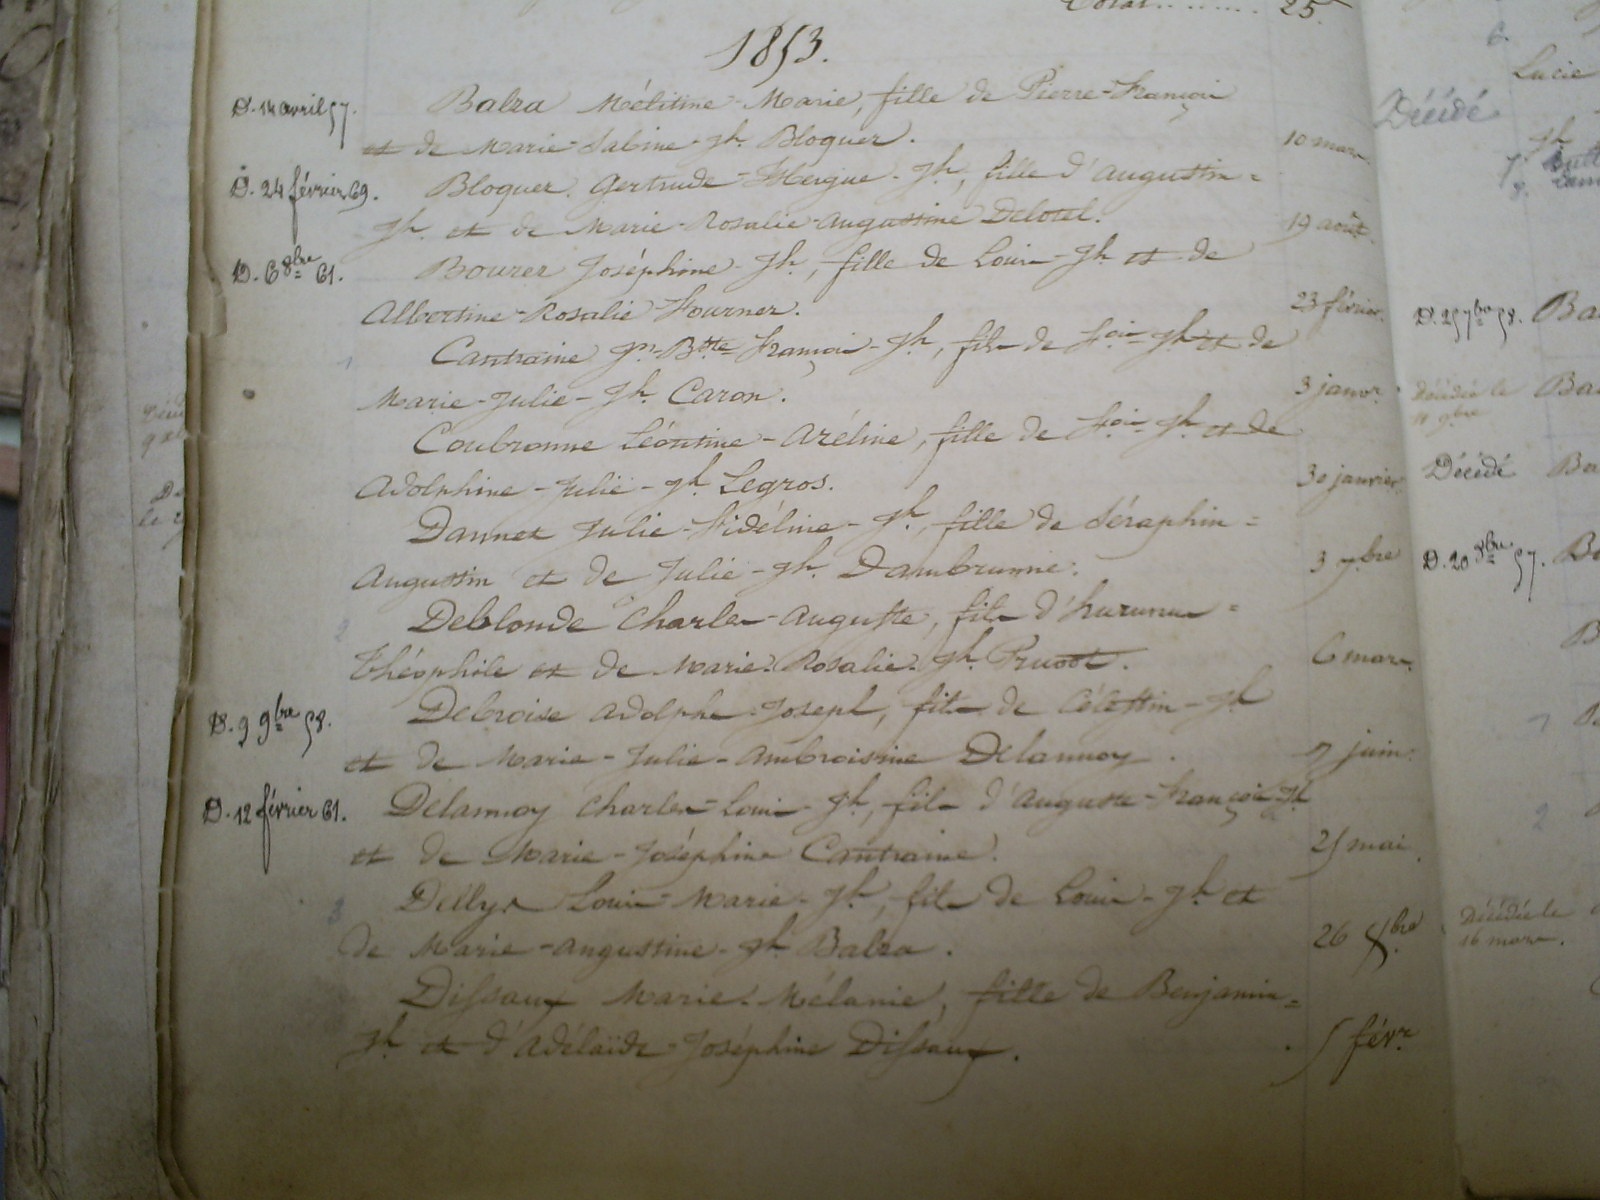 Total ........ 25.
1853.
D. 14 avril 57. Balza Mélitine-Marie, fille de Pierre-François
et de Marie-Sabine-Jh. Bloquer. 10 mars.
D. 24 février 69. Bloquer Gertrude- -Jh, fille d'Augustin=
Jh. et de Marie-Rosalie-Augustine Delotel. 19 août.
D. 6 8bre 61. Bourez Joséphine-Jh, fille de Louis-Jh et de
Albertine-Rosalie Fournez. 23 février.
Cantraine Jn-Btte-François-Jh, fils de Fois-Jh et de
Marie-Julie-Jh. Caron. 3 janvr.
Coubronne Léontine-Azéline, fille de Fois-Jh et de
Adolphine-Julie-Jh. Legros. 30 janvier.
Dannet Julie-Fidéline-Jh, fille de Séraphin=
Augustin et de Julie-Jh. Dambrunne. 3 7bre
2 Deblonde Charles-Auguste, fils d'
Théophile et de Marie-Rosalie-Jh. Pruvost. 6 mars.
D. 9 9bre 58. Debroise Adolphe-Joseph, fils de Célestin-Jh
et de Marie-Julie-Ambroisine Delannoy. 7 juin.
D. 12 février 61. Delannoy Charles-Louis-Jh, fils d'Auguste-François-Jh
et de Marie-Joséphine Cantraine. 25 mai.
3 Dellys Louis-Marie-Jh, fils de Louis-Jh et
de Marie-Angustine-Jh Balza. 26 Xbre
Dissaux Marie-Mélanie, fille de Benjamin=
Jh et d'Adélaïde-Joséphine Dissaux. 5 févr.
Lucie
Décédé
Jh
D. 25 7bre 58. Ba
Décédée le Ba
11 9bre
Décédé Ba
D. 20 8bre 57. Be
B
Décédée le
16 mars.